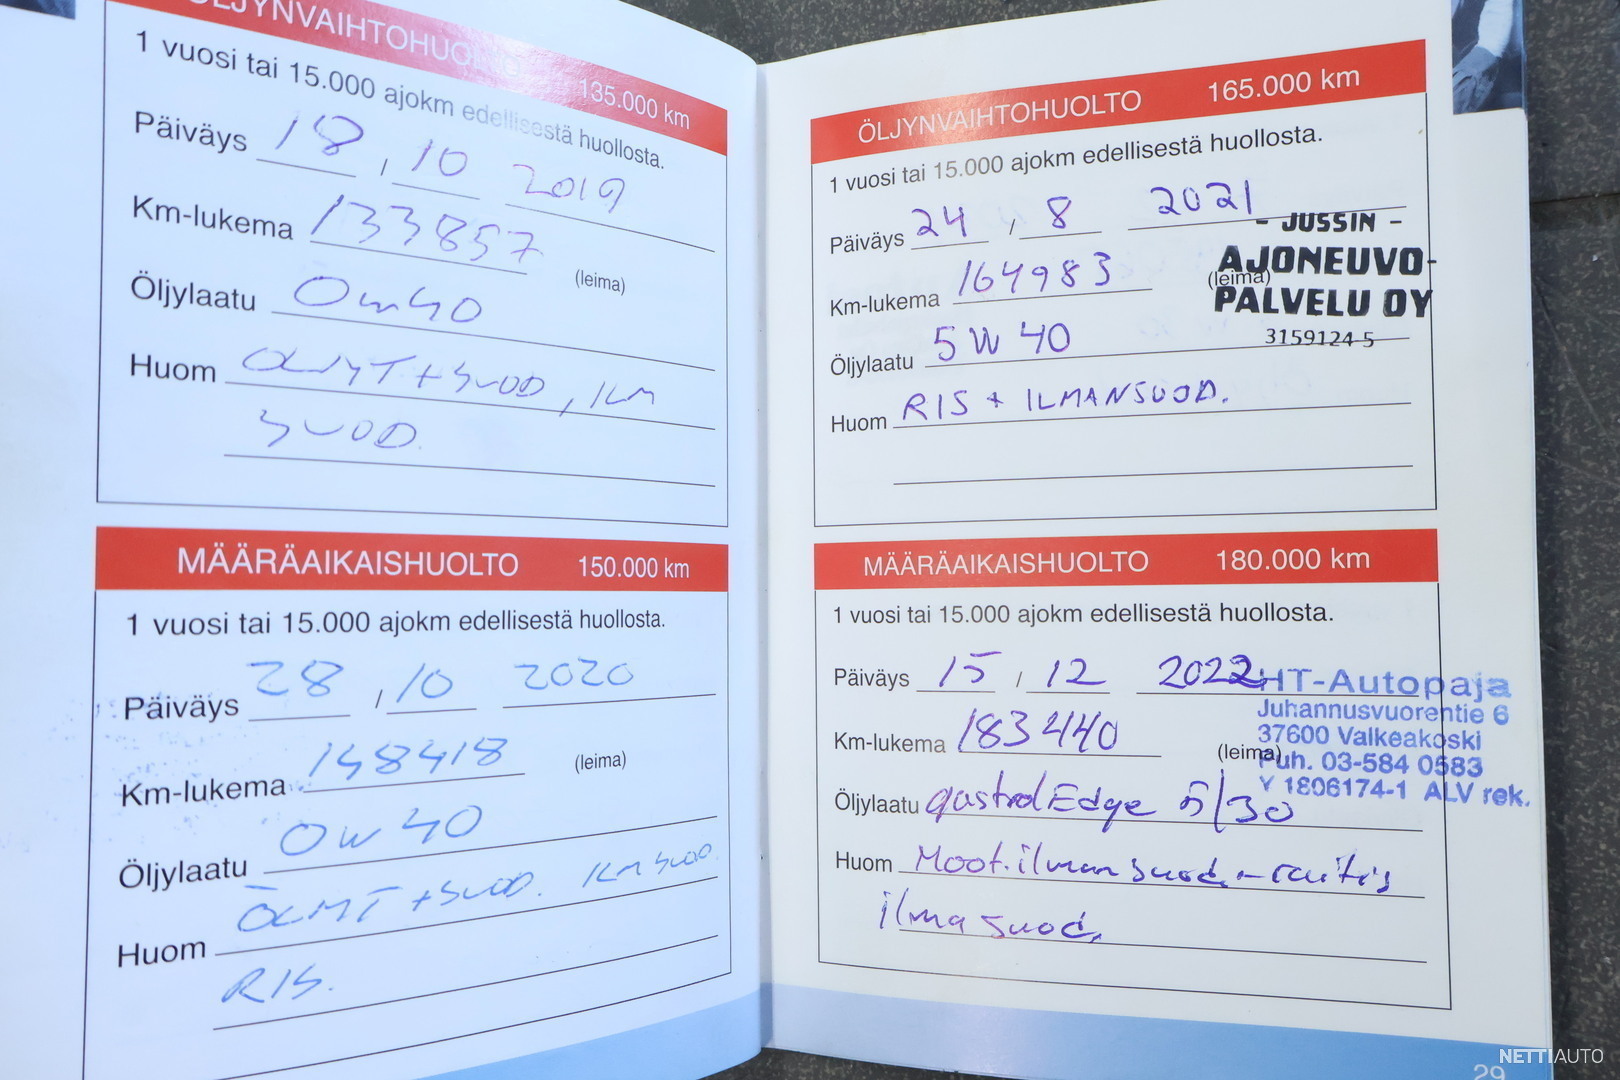 ÖLJYNVAIHTOHUOLTO 135.000 km
1 vuosi tai 15.000 ajokm edellisestä huollosta.
Päiväys 18 , 10 2019
Km-lukema 133857
(leima)
Öljylaatu 0w40
Huom ÖLJYT + SUOD, ILM
SUOD.
MÄÄRÄAIKAISHUOLTO 150.000 km
1 vuosi tai 15.000 ajokm edellisestä huollosta.
Päiväys 28 / 10 2020
Km-lukema 148418 (leima)
Öljylaatu 0w40
Huom ÖLJYT + SUOD. ILM SUOD.
RIS.
ÖLJYNVAIHTOHUOLTO 165.000 km
1 vuosi tai 15.000 ajokm edellisestä huollosta.
Päiväys 24 / 8 2021
- JUSSIN -
AJONEUVO-
PALVELU OY
3159124-5
Km-lukema 164983 (leima)
Öljylaatu 5W40
Huom RIS + ILMANSUOD.
MÄÄRÄAIKAISHUOLTO 180.000 km
1 vuosi tai 15.000 ajokm edellisestä huollosta.
Päiväys 15 / 12 2022
HT-Autopaja
Juhannusvuorentie 6
37600 Valkeakoski
Puh. 03-584 0583
Y 1806174-1 ALV rek.
Km-lukema 183440 (leima)
Öljylaatu castrol Edge 5/30
Huom Moot.ilman suod. - raitis
ilma suod.
29
NETTIAUTO